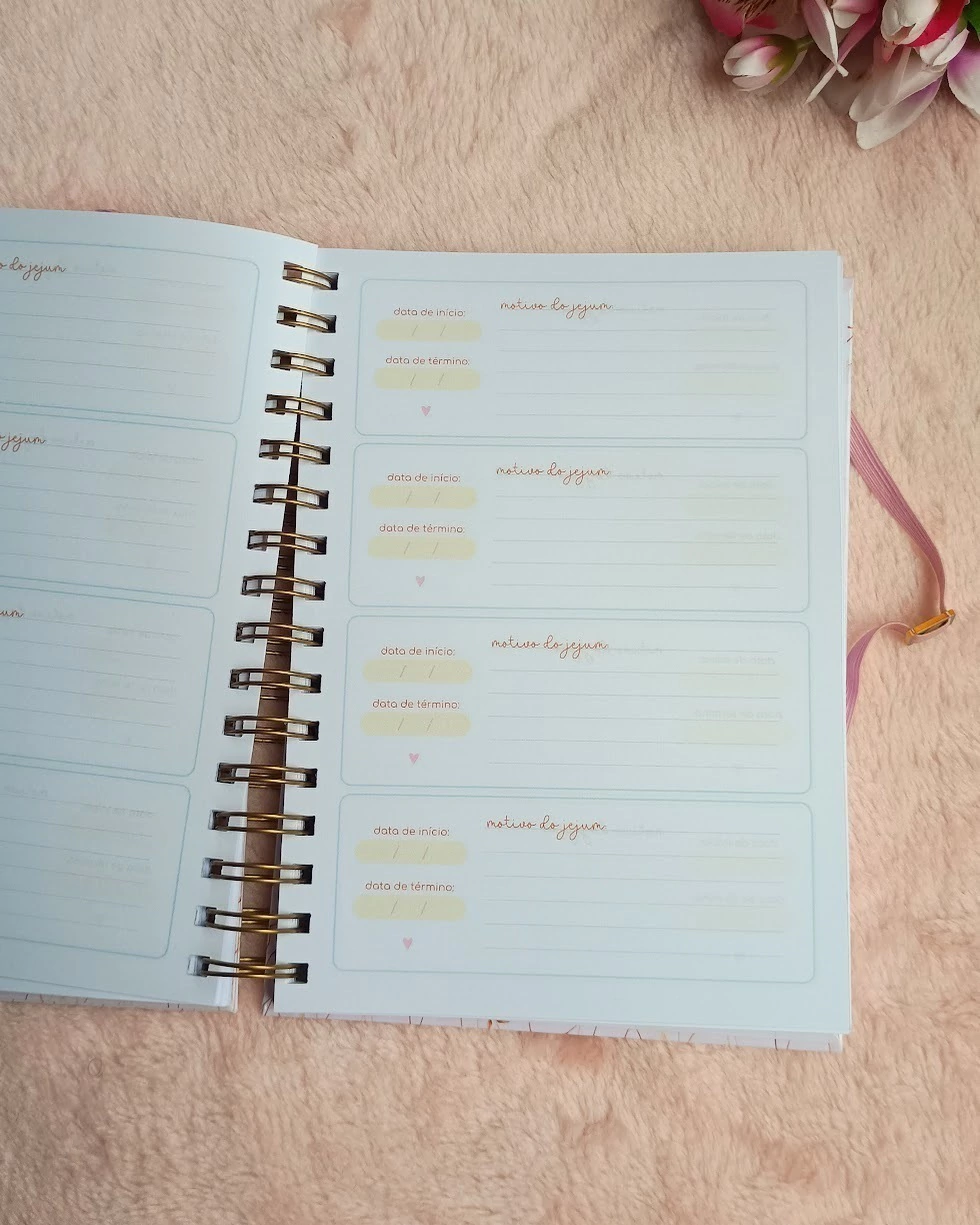 do jejum
jejum
data de início:
motivo do jejum
/ /
data de término:
/ /
data de início:
motivo do jejum
/ /
data de término:
/ /
data de início:
motivo do jejum
/ /
data de término:
/ /
data de início:
motivo do jejum
/ /
data de término:
/ /